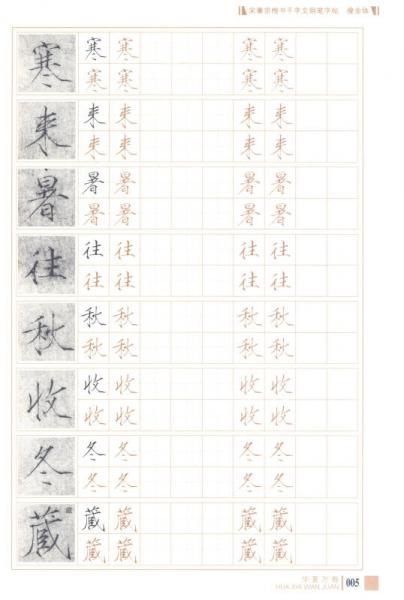 宋徽宗楷书千字文钢笔字帖 瘦金体
寒 寒 寒 寒 寒
寒 寒 寒 寒
来 来 来 来 来
来 来 来 来
暑 暑 暑 暑 暑
暑 暑 暑 暑
往 往 往 往 往
往 往 往 往
秋 秋 秋 秋 秋
秋 秋 秋 秋
收 收 收 收 收
收 收 收 收
冬 冬 冬 冬 冬
冬 冬 冬 冬
藏 藏 藏 藏 藏 藏
藏 藏 藏 藏
华夏万卷
HUA XIA WAN JUAN
005